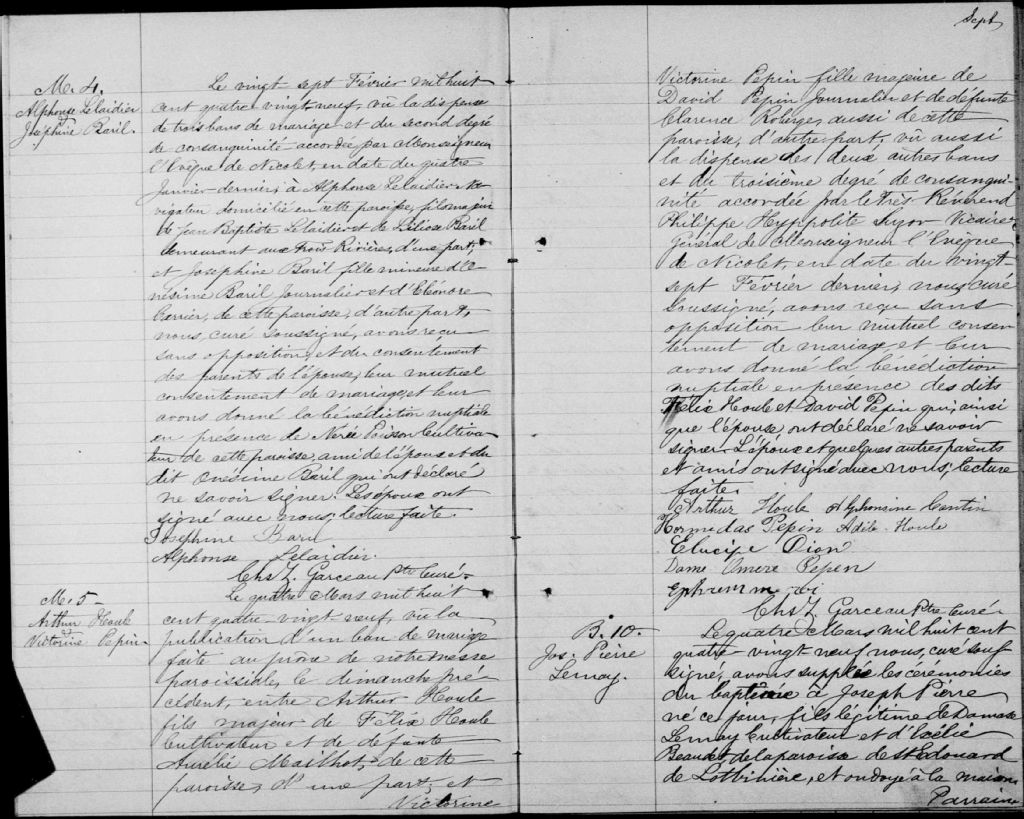 M. 4.
Alphonse Lelaidier
&
Josephine Baril.
Le vingt-sept Février mil huit
cent quatre-vingt-neuf, vû la dispense
de trois bans de mariage et du second degré
de consanguinité accordée par Monseigneur
l'Evêque de Nicolet, en date du quatre
Janvier dernier, à Alphonse Lelaidier Na-
vigateur domicilié en cette paroisse, fils majeur
de Jean Baptiste Lelaidier et de Baril
demeurant aux Trois Rivières, d'une part,
et Josephine Baril fille mineure d'O-
nésime Baril Journalier et d'Eléonore
Perrier, de cette paroisse, d'autre part,
nous, curé soussigné, avons reçu
sans opposition, et du consentement
des parents de l'épouse, leur mutuel
consentement de mariage, et leur
avons donné la bénédiction nuptiale
en présence de Nérée Poisson Cultiva-
teur de cette paroisse, ami de l'époux et du
dit Onésime Baril qui ont déclaré
ne savoir signer. Les époux ont
signé avec nous, lecture faite.
Josephine Baril
Alphonse Lelaidier.
Chs Z. Garceau Ptre Curé.
M. 5-
Arthur Houle
&
Victorine Pepin.
Le quatre Mars mil huit
cent quatre-vingt-neuf, vû la
publication d'un ban de mariage
faite au prône de notre messe
paroissiale, le dimanche pré-
cédent, entre Arthur Houle
fils majeur de Félix Houle
Cultivateur et de défunte
Aurélie Mailhot, de cette
paroisse, d'une part, et
Victorine
Sept
Victorine Pepin fille majeure de
David Pepin Journalier et de défunte
Clarence Roberge, aussi de cette
paroisse, d'autre part, vû aussi
la dispense des deux autres bans
et du troisième degré de consangui-
nité accordée par le Très Révérend
Philippe Hyppolite Suzor Vicaire
Général de Monseigneur l'Evêque
de Nicolet, en date du vingt-
sept Février dernier, nous, curé
soussigné, avons reçu sans
opposition leur mutuel consen-
tement de mariage, et leur
avons donné la bénédiction
nuptiale en présence des dits
Félix Houle et David Pepin qui, ainsi
que l'épouse ont déclaré ne savoir
signer. L'époux et quelques autres parents
et amis ont signé avec nous, lecture
faite.
Arthur Houle Alphonsine Cantin
Hormidas Pepin Adèle Houle
Elucipe Dion
Dame Omere Pepen
Ephrem
Chs Z Garceau Ptre Curé
B. 10.
Jos. Pierre
Lemay.
Le quatre Mars mil huit cent
quatre-vingt neuf, nous, curé sous-
signé, avons supplée les cérémonies
du baptême à Joseph Pierre
né ce jour, fils légitime de Damase
Lemay Cultivateur et d'Exélie
Beaudet de la paroisse de St Edouard
de Lotbinière, et ondoyé à la maison
Parrain